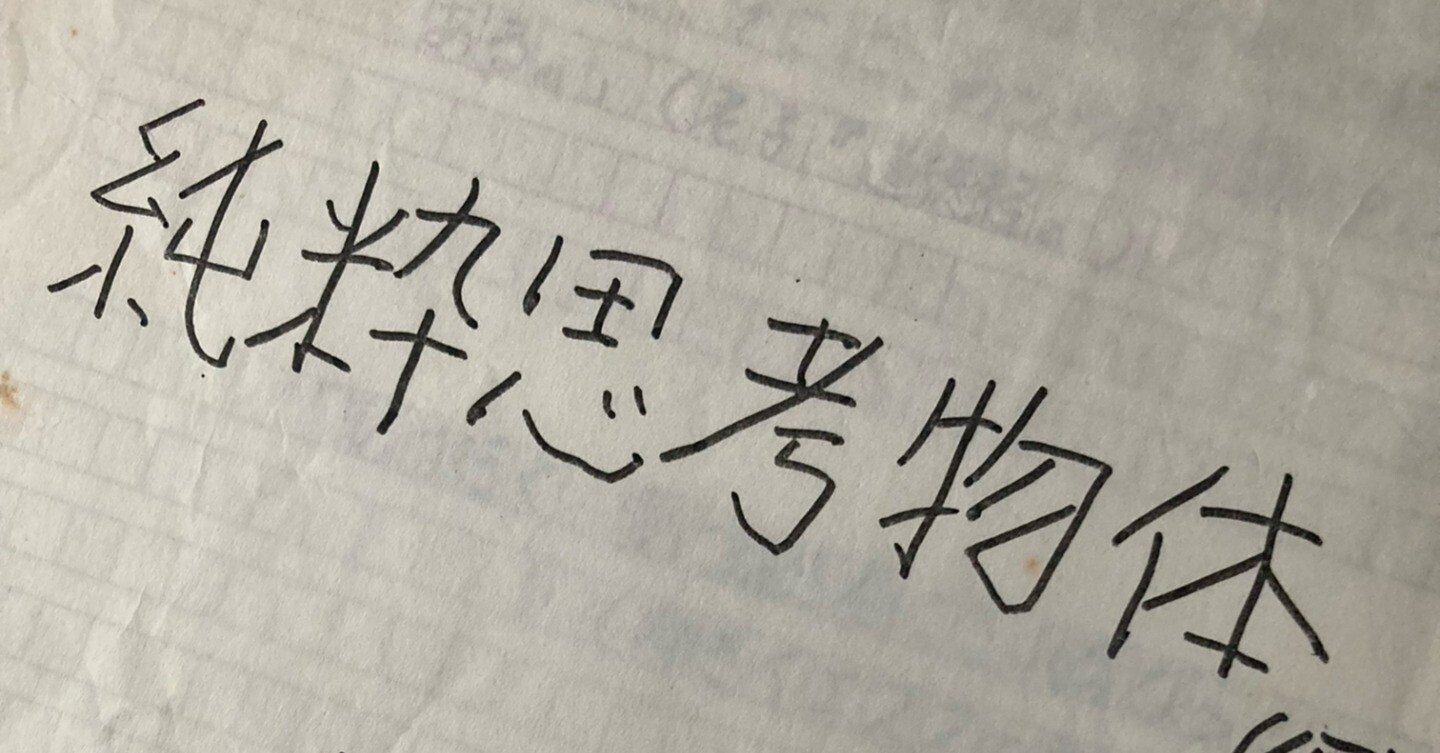 純粋思考物体